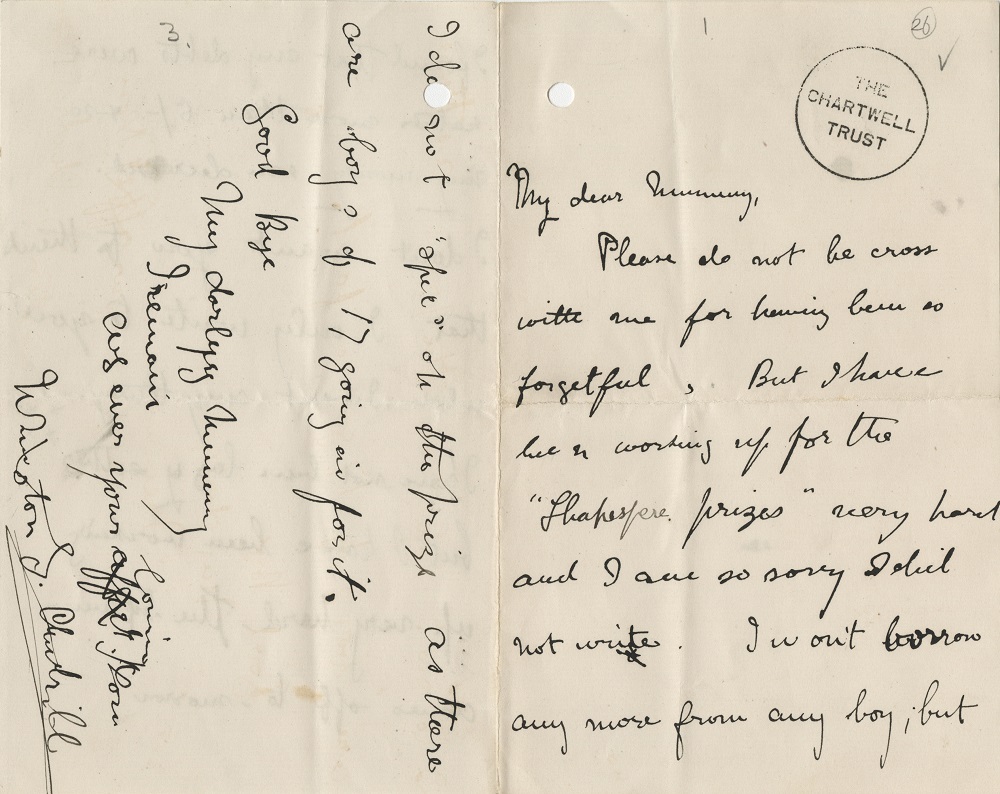 1
26
THE
CHARTWELL
TRUST
My dear Mummy,
Please do not be cross
with me for having been so
forgetful, But I have
been working up for the
"Shakespere prizes" very hard
and I am so sorry I did
not write. I won't borrow
any more from any boy; but
3.
I do not 'spec' on the prize as there
are boys of 17 going in for it.
Good Bye
My darling Mummy
I remain
as ever your loving
Winston S. Churchill